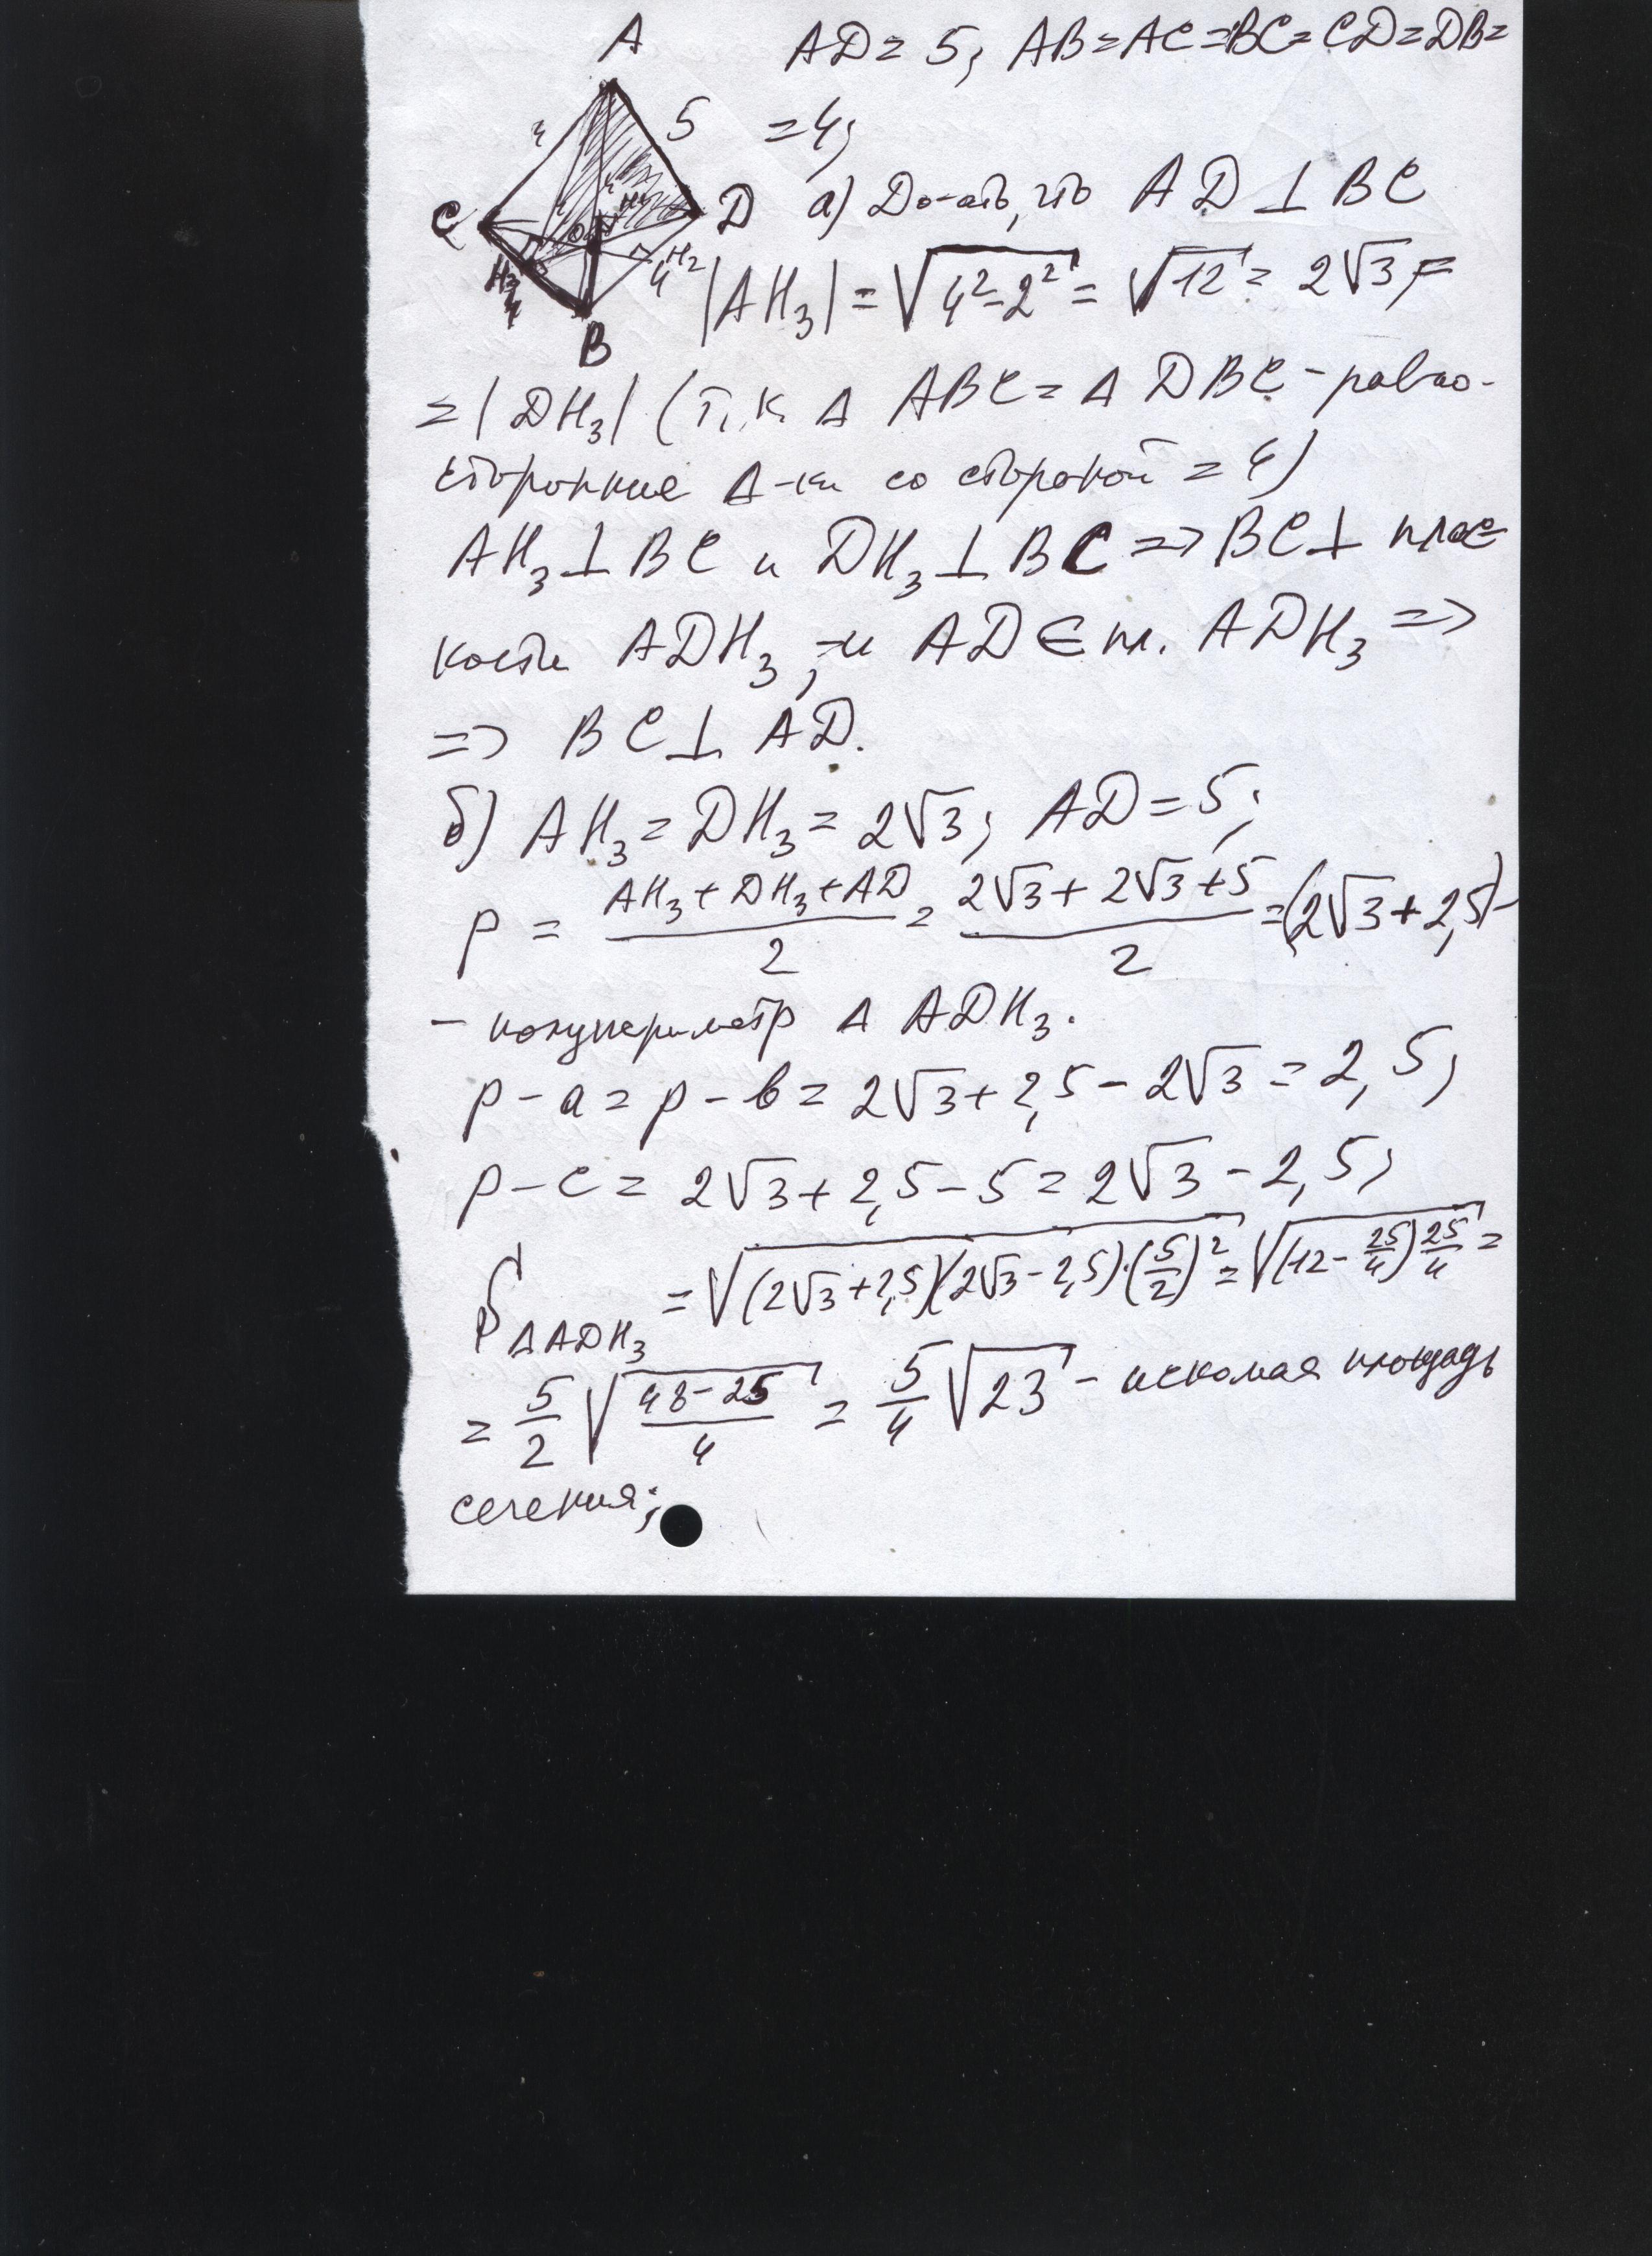 A
AD = 5; AB = AC = BC = CD = DB =
4 5 = 4;
C D а) До-ать, что AD ⊥ BC
O H₂ 4
H₃ 4 |AH₃| = √(4² - 2²) = √12 = 2√3 =
B
= |DH₃| (т.к. Δ ABC = Δ DBC - равно-
сторонние Δ-ки со стороной = 4)
AH₃ ⊥ BC и DH₃ ⊥ BC => BC ⊥ плос-
кости ADH₃, и AD ∈ пл. ADH₃ =>
=> BC ⊥ AD.
б) AH₃ = DH₃ = 2√3; AD = 5;
p = (AH₃ + DH₃ + AD)/2 = (2√3 + 2√3 + 5)/2 = (2√3 + 2,5) -
- полупериметр Δ ADH₃.
p - a = p - b = 2√3 + 2,5 - 2√3 = 2,5;
p - c = 2√3 + 2,5 - 5 = 2√3 - 2,5;
S ΔADH₃ = √((2√3 + 2,5)(2√3 - 2,5)·(5/2)²) = √((12 - 25/4) 25/4) =
= 5/2 √((48 - 25)/4) = 5/4 √23 - искомая площадь
сечения;